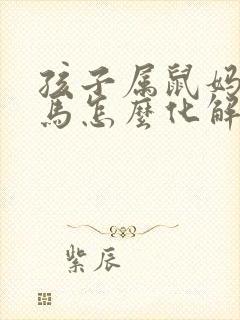 孩子属鼠妈
马怎麽化解
紫辰